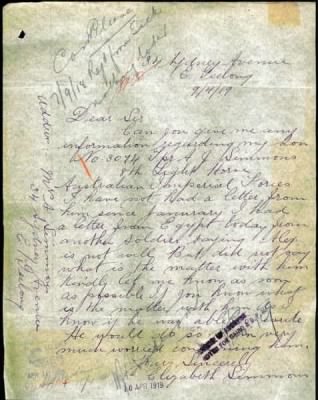 34 Sydney Avenue
E. Geelong
9/4/19
Dear Sir
Can you give me any
information regarding my son
No. 3074 Tpr A J Simmons
8th Light Horse
Australian Imperial Forces
I have not had a letter from
him since January I had
a letter from Egypt today from
another Soldier saying Alex
is not well But did not say
what is the matter with him
kindly let me know as soon
as possible if you know what
is the matter with him
know if he was able to write
He would to so
much worried concerning him.
Yours Sincerely
Elizabeth Simmons
10 APR 1919
Address Mrs Simmons
34 Sydney Avenue
E Geelong